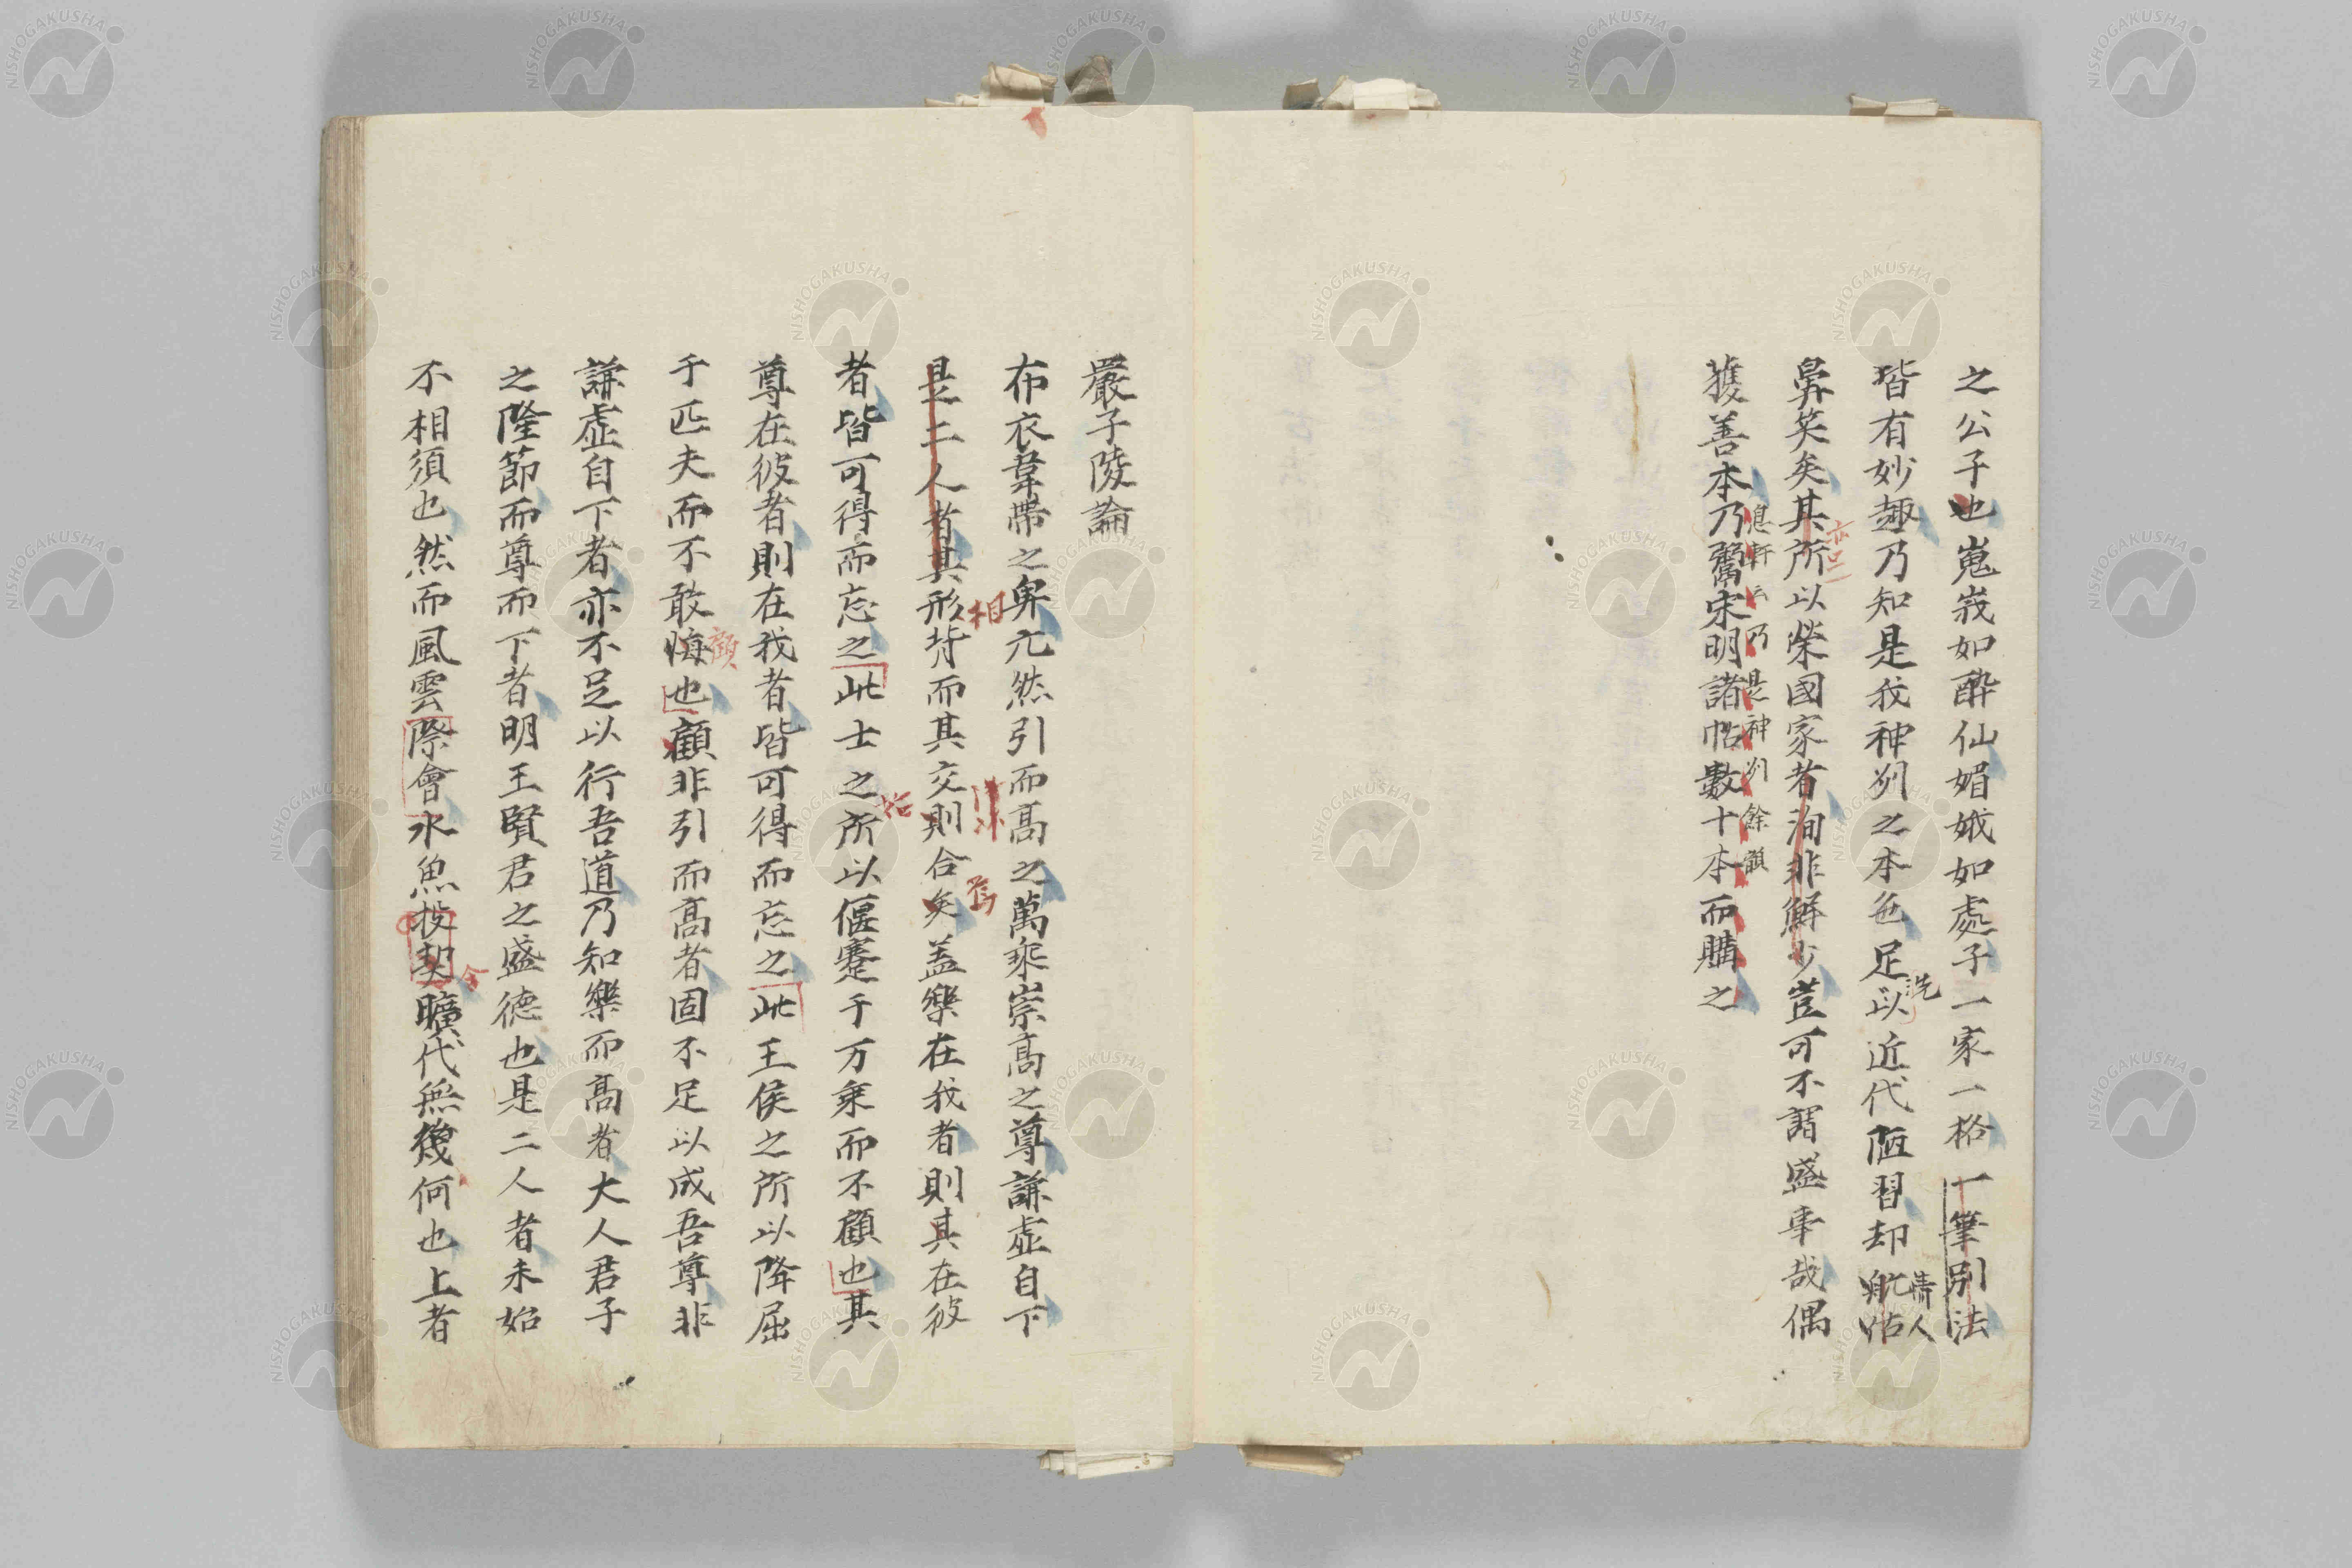 之公子也嵬峩如酔仙媚娥如處子一家一格一筆別法
皆有妙趣乃知是我神州之本色足以近代陋習却
洗
情人
鼻笑矣其所以榮國家者洵非鮮少豈可不謂盛事哉偶
獲善本乃鬻宋明諸帖數十本而購之
息軒云乃是神州餘韻
嚴子陵論
布衣韋帶之卑亢然引而高之萬乘崇高之尊謙虛自下
是二人者其形背而其交則合矣盖樂在我者則其在彼
相
焉
者皆可得而忘之此士之所以偃蹇于万乘而不顧也其
尊在彼者則在我者皆可得而忘之此王侯之所以降屈
于匹夫而不敢悔也顧非引而高者固不足以成吾尊非
顧
謙虛自下者亦不足以行吾道乃知樂而高者大人君子
之隆節而尊而下者明王賢君之盛德也是二人者未始
不相須也然而風雲際會水魚投契曠代無幾何也上者
合
NISHOGAKUSHA